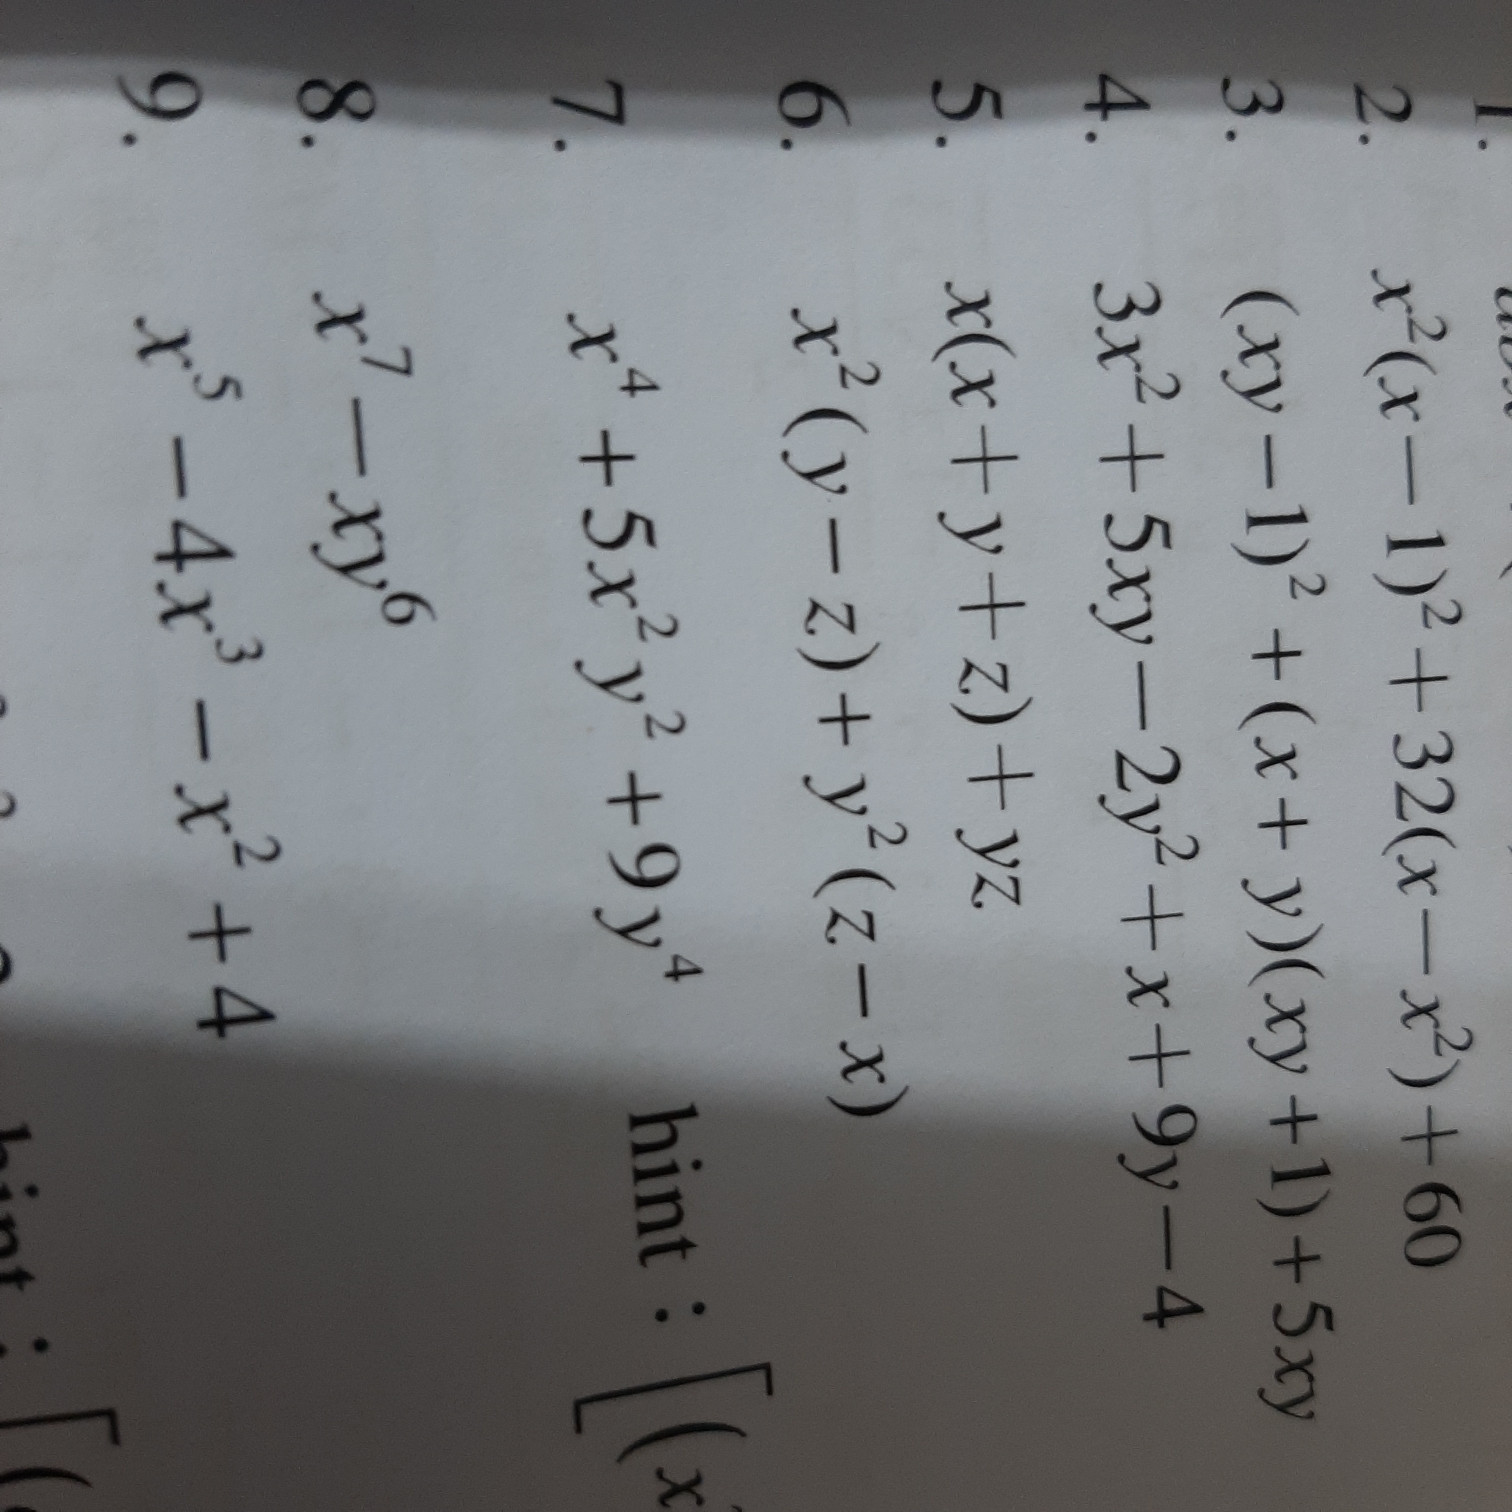 1.
2. x²(x − 1)² + 32(x − x²) + 60
3. (xy − 1)² + (x + y)(xy + 1) + 5xy
4. 3x² + 5xy − 2y² + x + 9y − 4
5. x(x + y + z) + yz
6. x²(y − z) + y²(z − x)
7. x⁴ + 5x²y² + 9y⁴ hint : [(x
8. x⁷ − xy⁶
9. x⁵ − 4x³ − x² + 4
hint : [(